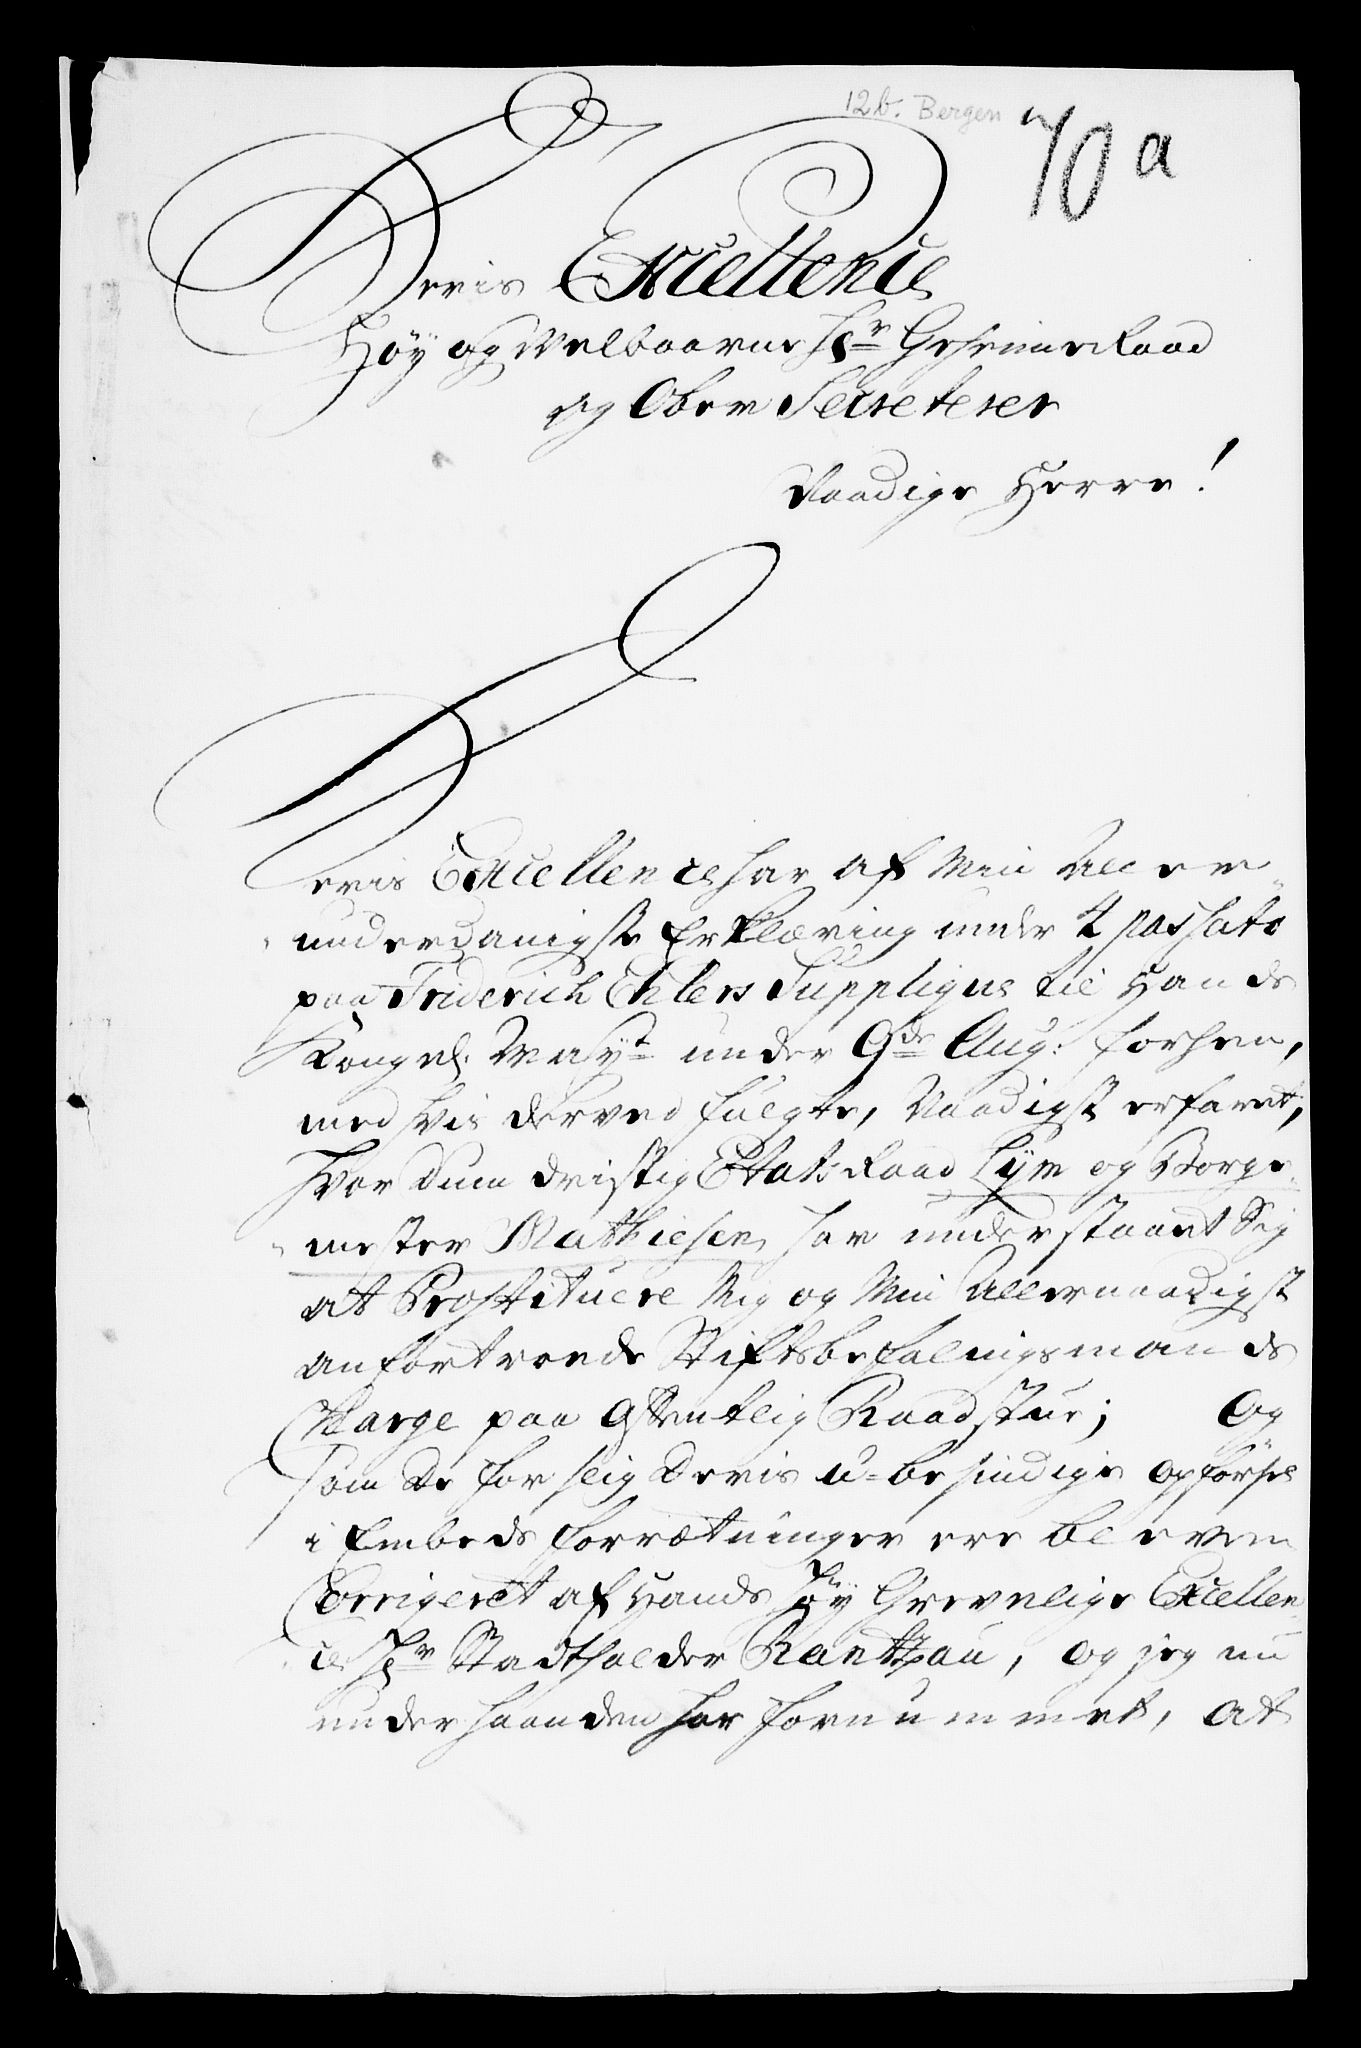 12b. Bergen
70 a
Deris Excellence
Høy og Welbaarne Hr Geheime Raad
og Ober Secreterer
Naadige Herre!
Deris Excellence har af Min Aller-
underdanigste Erklæring under 2 passato
paa Friderich Ehlers Supplique til Hands
Kongel. Mayt under 9de Aug: forhen,
med hvis derved fulgte, Naadigst erfaret,
hvor dum dristig Etats Raad Lÿm og Borge-
mester Mathiesen har understaaet Sig
at Prostituere Mig og Min Allernaadigst
anfortroede Stiftsbefalingsmands
Charge paa Offentlig Raadstue; Og
som de for slig deris u-besindige opførsel
i Embeds forrætninger ere bleven
Corrigeret af Hands Høy Grevelige Excellen-
ce Hr Stadtholder Rantzau, og jeg nu
under haanden har fornummet, at